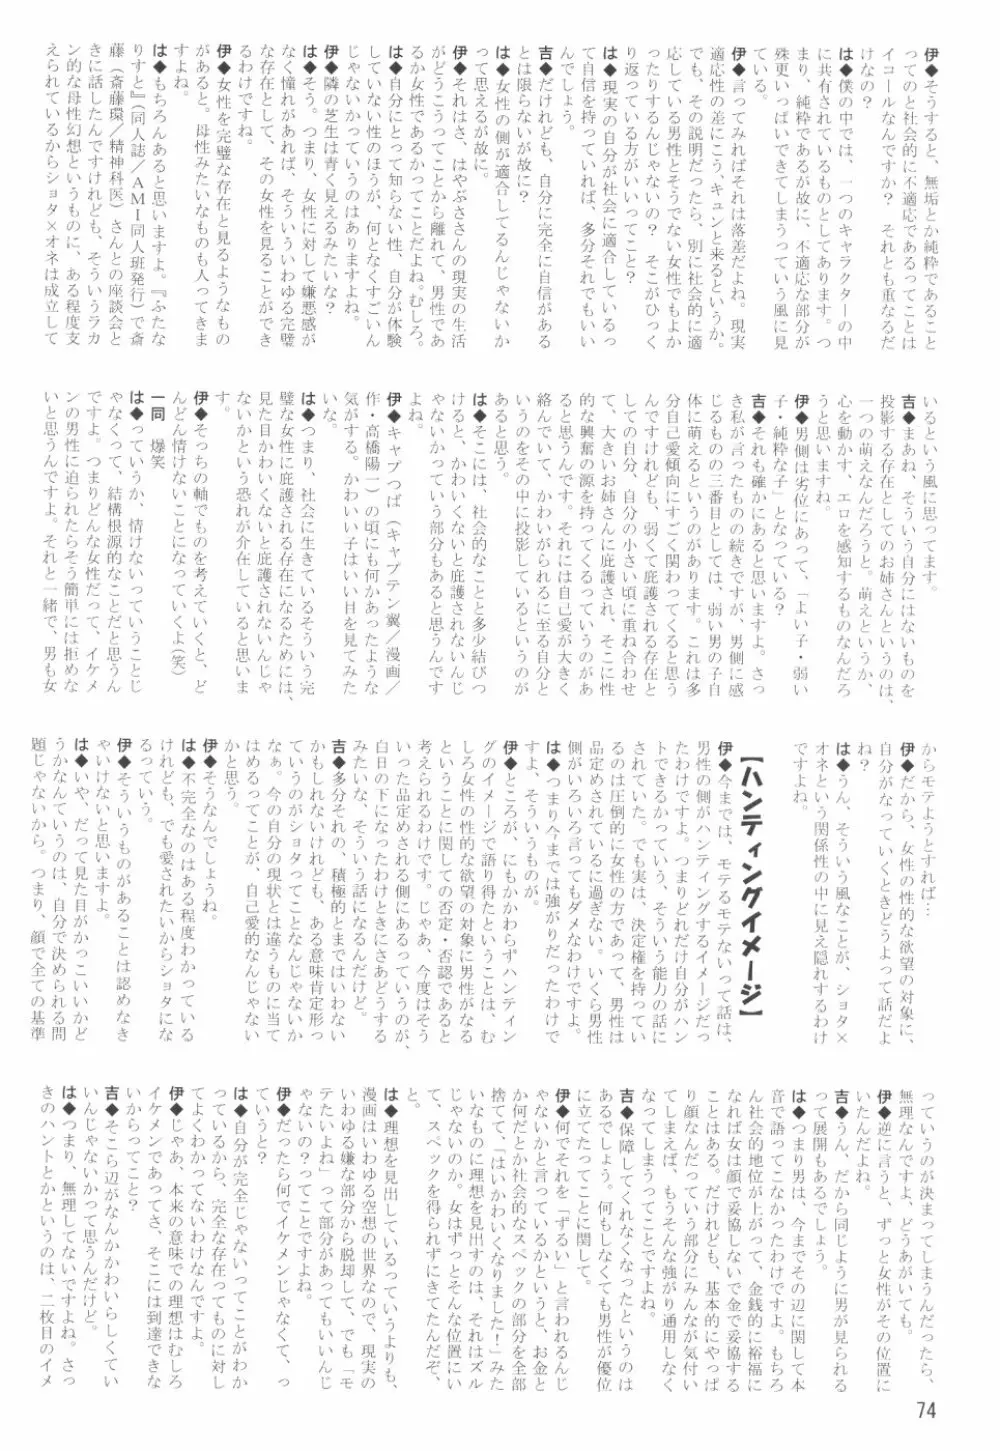 伊◆そうすると、無垢とか純粋であること
ってのと社会的に不適応であるってことは
イコールなんですか？　それとも重なるだ
けなの？
は◆僕の中では、一つのキャラクターの中
に共有されているものとしてあります。つ
まり、純粋であるが故に、不適応な部分が
殊更いっぱいできてしまうっていう風に見
ている。
伊◆言ってみればそれは落差だよね。現実
適応性の差にこう、キュンと来るというか。
でも、その説明だったら、別に社会的に適
応している男性とそうでない女性でもよか
ったりするんじゃないの？　そこがひっく
り返っている方がいいってこと？
は◆現実の自分が社会に適合しているっ
て自信を持っていれば、多分それでもいい
んでしょう。
吉◆だけれども、自分に完全に自信がある
とは限らないが故に？
は◆女性の側が適合してるんじゃないか
って思えるが故に。
伊◆それはさ、はやぶささんの現実の生活
がどうこうってことから離れて、男性であ
るか女性であるかってことだよね。むしろ。
は◆自分にとって知らない性、自分が体験
していない性のほうが、何となくすごいん
じゃないかっていうのはありますよね。
伊◆隣の芝生は青く見えるみたいな？
は◆そう。つまり、女性に対して嫌悪感が
なく憧れがあれば、そういういわゆる完璧
な存在として、その女性を見ることができ
るわけですね。
伊◆女性を完璧な存在と見るようなもの
があると。母性みたいなものも人ってきま
すよね。
は◆もちろんあると思いますよ。『ふたな
りすと』（同人誌／ＡＭＩ同人班発行）で斎
藤（斎藤環／精神科医）さんとの座談会と
きに話したんですけれども、そういうラカ
ン的な母性幻想というものに、ある程度支
えられているからショタ×オネは成立して
いるという風に思ってます。
吉◆まあね、そういう自分にはないものを
投影する存在としてのお姉さんというのは、
一つの萌えなんだろうと。萌えというか、
心を動かす、エロを感知するものなんだろ
うと思いますね。
伊◆男側は劣位にあって、「よい子・弱い
子・純粋な子」となっている？
吉◆それも確かにあると思いますよ。さっ
き私が言ったものの続きですが、男側に感
じるものの三番目としては、弱い男の子自
体に萌えるというのがあります。これは多
分自己愛傾向にすごく関わってくると思う
んですけれども、弱くて庇護される存在と
しての自分、自分の小さい頃に重ね合わせ
て、大きいお姉さんに庇護され、そこに性
的な興奮の源を持ってくるっていうのがあ
ると思うんです。それには自己愛が大きく
絡んでいて、かわいがられるに至る自分と
いうのをその中に投影しているというのが
あると思う。
は◆そこには、社会的なことと多少結びつ
けると、かわいくないと庇護されないんじ
ゃないかっていう部分もあると思うんです
よね。
伊◆キャプつば（キャプテン翼／漫画／
作・高橋陽一）の頃にも何かあったような
気がする。かわいい子はいい目を見てみた
いな。
は◆つまり、社会に生きているそういう完
璧な女性に庇護される存在になるためには、
見た目かわいくないと庇護されないんじゃ
ないかという恐れが介在していると思いま
す。
伊◆そっちの軸でものを考えていくと、ど
んどん情けないことになっていくよ（笑）
一同　爆笑
は◆っていうか、情けないっていうことじ
ゃなくって、結構根源的なことだと思うん
ですよ。つまりどんな女性だって、イケメ
ンの男性に迫られたらそう簡単には拒めな
いと思うんですよ。それと一緒で、男も女
からモテようとすれば…
伊◆だから、女性の性的な欲望の対象に、
自分がなっていくときどうよって話だよ
ね？
は◆うん、そういう風なことが、ショタ×
オネという関係性の中に見え隠れするわけ
ですよね。
【ハンティングイメージ】
伊◆今までは、モテるモテないって話は、
男性の側がハンティングするイメージだっ
たわけですよ。つまりどれだけ自分がハン
トできるかっていう、そういう能力の話に
されていた。でも実は、決定権を持ってい
るのは圧倒的に女性の方であって、男性は
品定めされているに過ぎない。いくら男性
側がいろいろ言ってもダメなわけですよ。
は◆つまり今までは強がりだったわけで
すよ、そういうものが。
伊◆ところが、にもかかわらずハンティン
グのイメージで語り得たということは、む
しろ女性の性的な欲望の対象に男性がなる
ということに関しての否定・否認であると
考えられるわけです。じゃあ、今度はそう
いった品定めされる側にあるっていうのが、
白日の下になったわけときにさあどうする
みたいな、そういう話になるんだけど。
吉◆多分それの、積極的とまではいわない
かもしれないけれども、ある意味肯定形っ
ていうのがショタってことなんじゃないか
なぁ。今の自分の現状とは違うものに当て
はめるってことが、自己愛的なんじゃない
かと思う。
伊◆そうなんでしょうね。
は◆不完全なのはある程度わかっている
けれども、でも愛されたいからショタにな
るっていう。
伊◆そういうものがあることは認めなき
ゃいけないと思いますよ。
は◆いや、だって見た目がかっこいいかど
うかなんていうのは、自分で決められる問
題じゃないから。つまり、顔で全ての基準
っていうのが決まってしまうんだったら、
無理なんですよ、どうあがいても。
伊◆逆に言うと、ずっと女性がその位置に
いたんだよね。
吉◆うん、だから同じように男が見られる
って展開もあるでしょう。
は◆つまり男は、今までその辺に関して本
音で語ってこなかったわけですよ。もちろ
ん社会的地位が上がって、金銭的に裕福に
なれば女は顔で妥協しないで金で妥協する
ことはある。だけれども、基本的にやっぱ
り顔なんだっていう部分にみんなが気付い
てしまえば、もうそんな強がり通用しなく
なってしまうってことですよね。
吉◆保障してくれなくなったというのは
あるでしょう。何もしなくても男性が優位
に立てたってことに関して。
伊◆何でそれを「ずるい」と言われるんじ
ゃないかと言っているかというと、お金と
か何だとか社会的なスペックの部分を全部
捨てて、「はいかわいくなりました！」みた
いなものに理想を見出すのは、それはズル
じゃないのか。女はずっとそんな位置にい
て、スペックを得られずにきてたんだぞ、
と。
は◆理想を見出しているっていうよりも、
漫画はいわゆる空想の世界なので、現実の
いわゆる嫌な部分から脱却して、でも「モ
テたいよね」って部分があってもいいんじ
ゃないの？ってことですよね。
伊◆だったら何でイケメンじゃなくて、っ
ていうと？
は◆自分が完全じゃないってことがわか
っているから、完全な存在ってものに対し
てよくわかってないわけなんですよ。
伊◆じゃあ、本来の意味での理想はむしろ
イケメンであってさ、そこには到達できな
いからってこと？
吉◆そこら辺がなんかかわいらしくてい
いんじゃないかって思うんだけど。
は◆つまり、無理してないですよね。さっ
きのハントとかというのは、二枚目のイメ
74